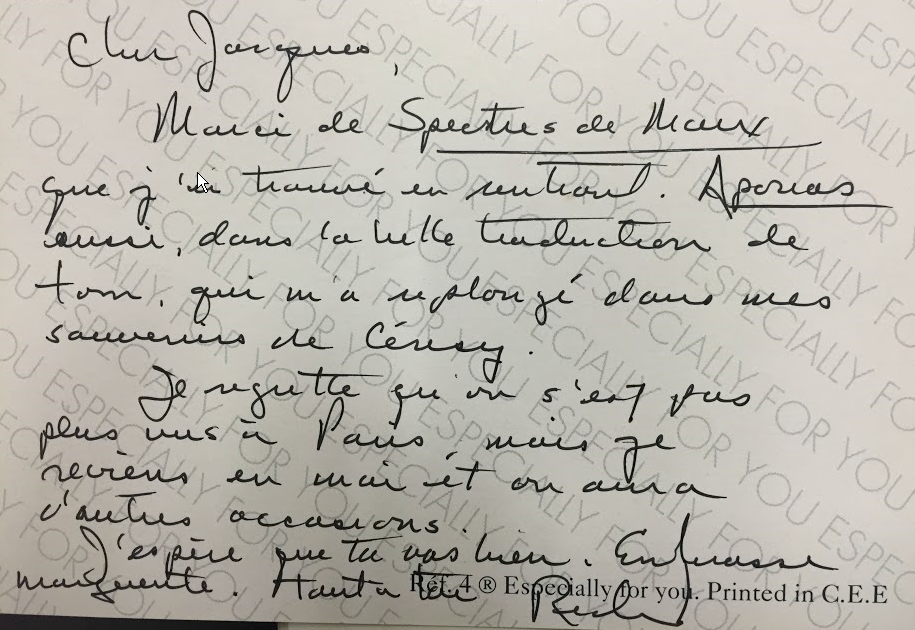 Cher Jacques,
Merci de Spectres de Marx
que j'ai trouvé en rentrant. Aporias
aussi, dans la belle traduction de
Tom, qui m'a replongé dans mes
souvenirs de Cérisy.
Je regrette qu'on s'est pas
plus vus à Paris mais je
reviens en mai et on aura
d'autres occasions.
J'espère que tu vas bien. Embrasse
Marguerite. Tout à toi
Réf. 4 ® Especially for you. Printed in C.E.E
ESPECIALLY FOR YOU